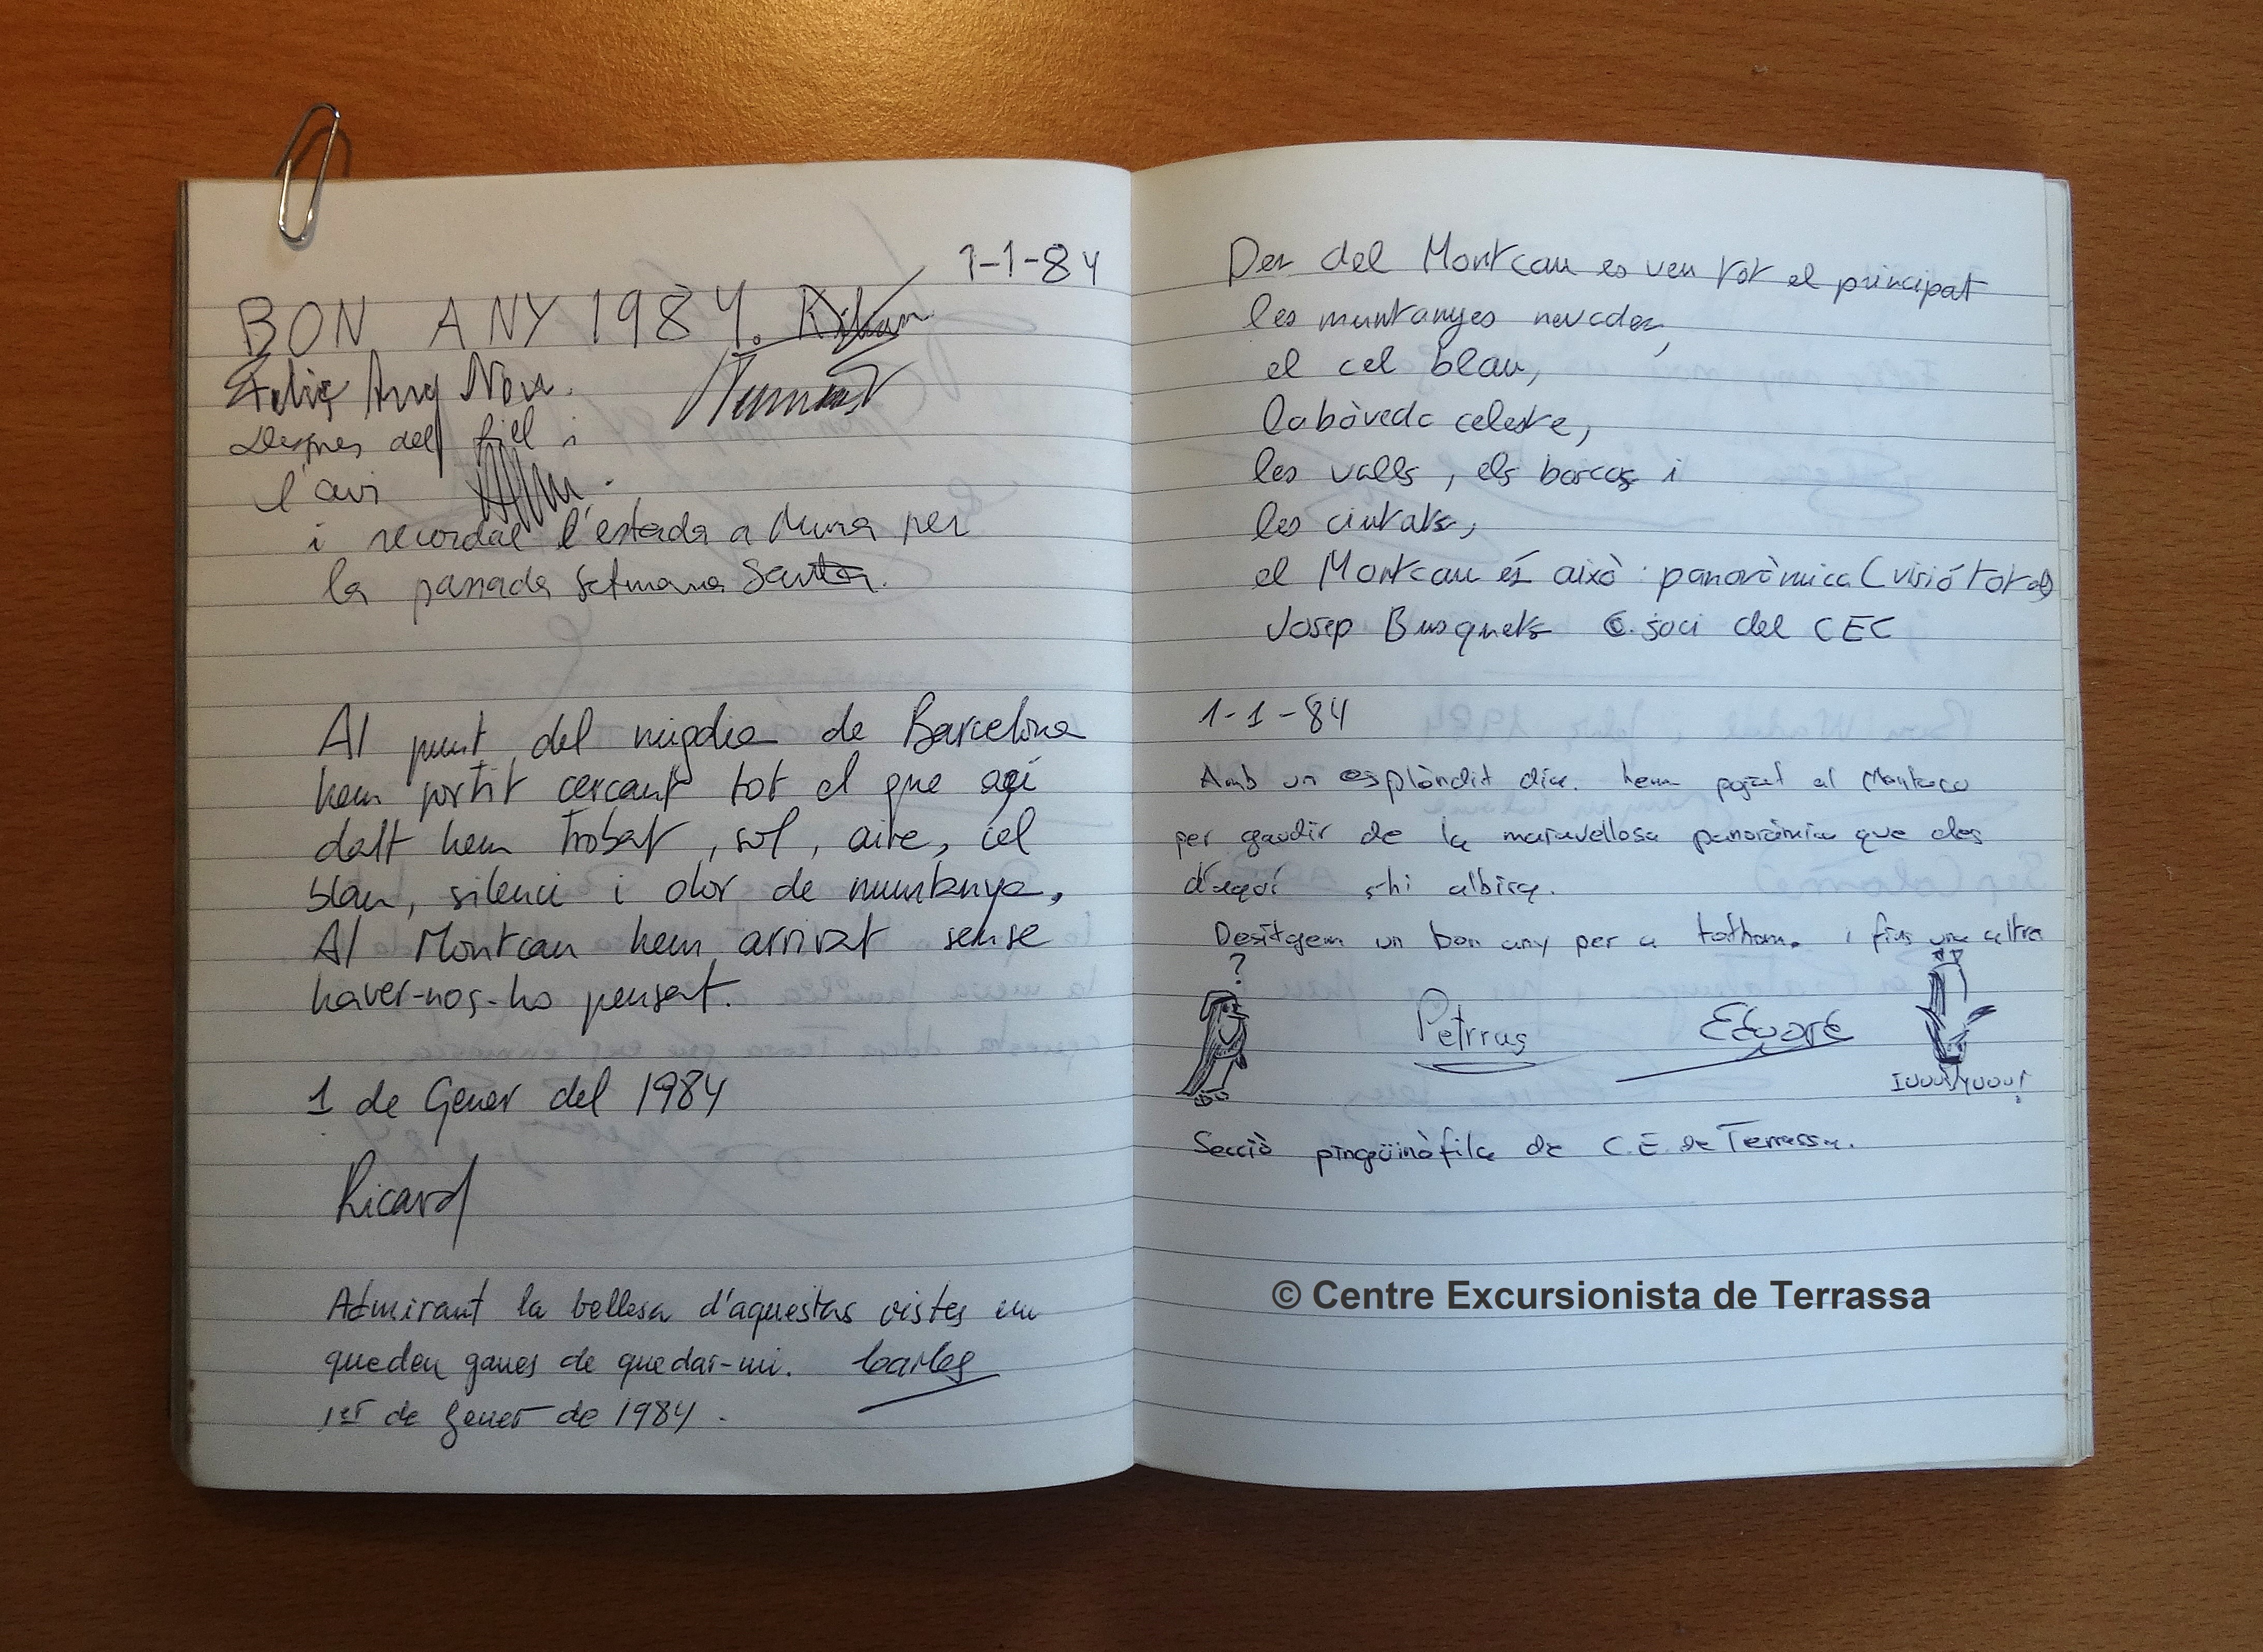 1-1-84
BON ANY 1984.
Feliç Any Nou.
Despres del fiel i
l'avi
i recordat l'estada a Mura per
la passada setmana Santa.
Al punt del migdia de Barcelona
hem partit cercant tot el que açí
dalt hem trobat, sol, aire, cel
blau, silenci i olor de muntanya,
Al Montcau hem arrivat sense
haver-nos-ho pensat.
1 de Gener del 1984
Ricard
Admirant la bellesa d'aquestas vistes em
queden ganes de quedar-mi. Carles
1er de Gener de 1984.
Des del Montcau es veu tot el principat
les muntanyes nevades,
el cel blau,
la bòveda celeste,
les valls, els boscos i
les ciutats,
el Montcau és això: panoràmica (visió total)
Josep Busquets C. soci del CEC
1-1-84
Amb un esplòndit dia. hem pojat al Montcau
per gaudir de la maravellosa panoràmica que des
d'aquí s-hi albira.
Desitgem un bon any per a tothom. i fins una altra
?
Petrrus Eduard
Secciò pingüinòfila de C.E. de Terrassa.
© Centre Excursionista de Terrassa